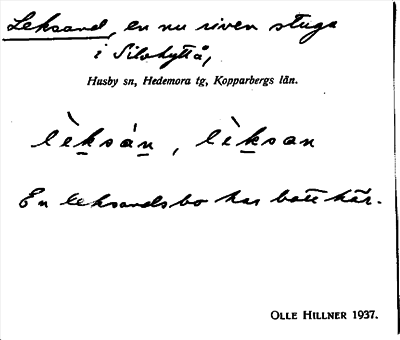 Leksand, en nu riven stuga
i Silvhyttå,
Husby sn, Hedemora tg, Kopparbergs län.
lèksán, lèksan
En leksandsbo har bott här.
OLLE HILLNER 1937.